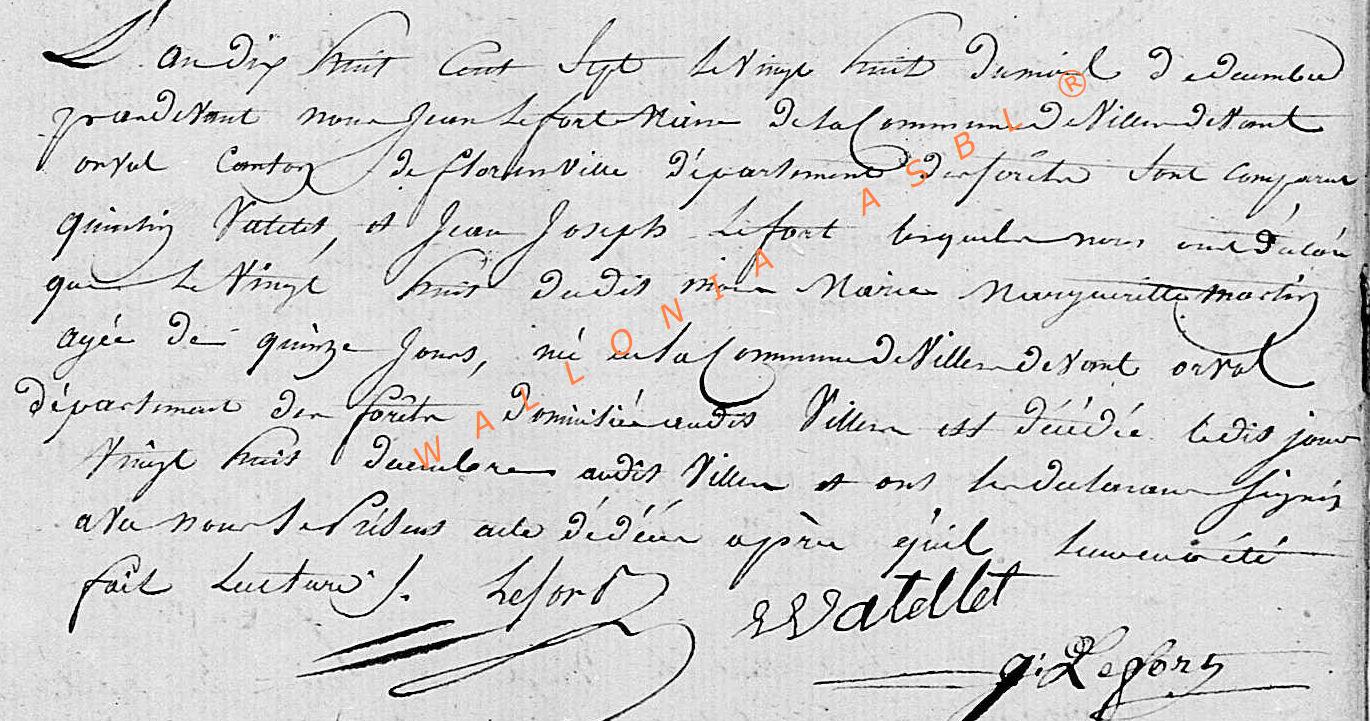 L'an dix huit cent sept le vingt huit du mois de decembre
pardevant nous Jean Lefort Maire de la Commune de Villers devant
orval Canton de florenville département des forêts sont comparus
quintin Vatelet, et Jean Joseph Lefort lesquels nous ont déclaré
que le vingt huit dudit mois Marie Margueritte Martin
agée de quinze jours, né en la Commune de Villers devant orval
département des forêts domiciliée audit Villers est décédée ledit jour
vingt huit decembre audit Villers et ont les declarans signés
avec nous le présent acte décès après qu'il leur en a été
fait lecture.
Lefort
Watellet
j:j: Lefort
WALLONIA ASBL ®